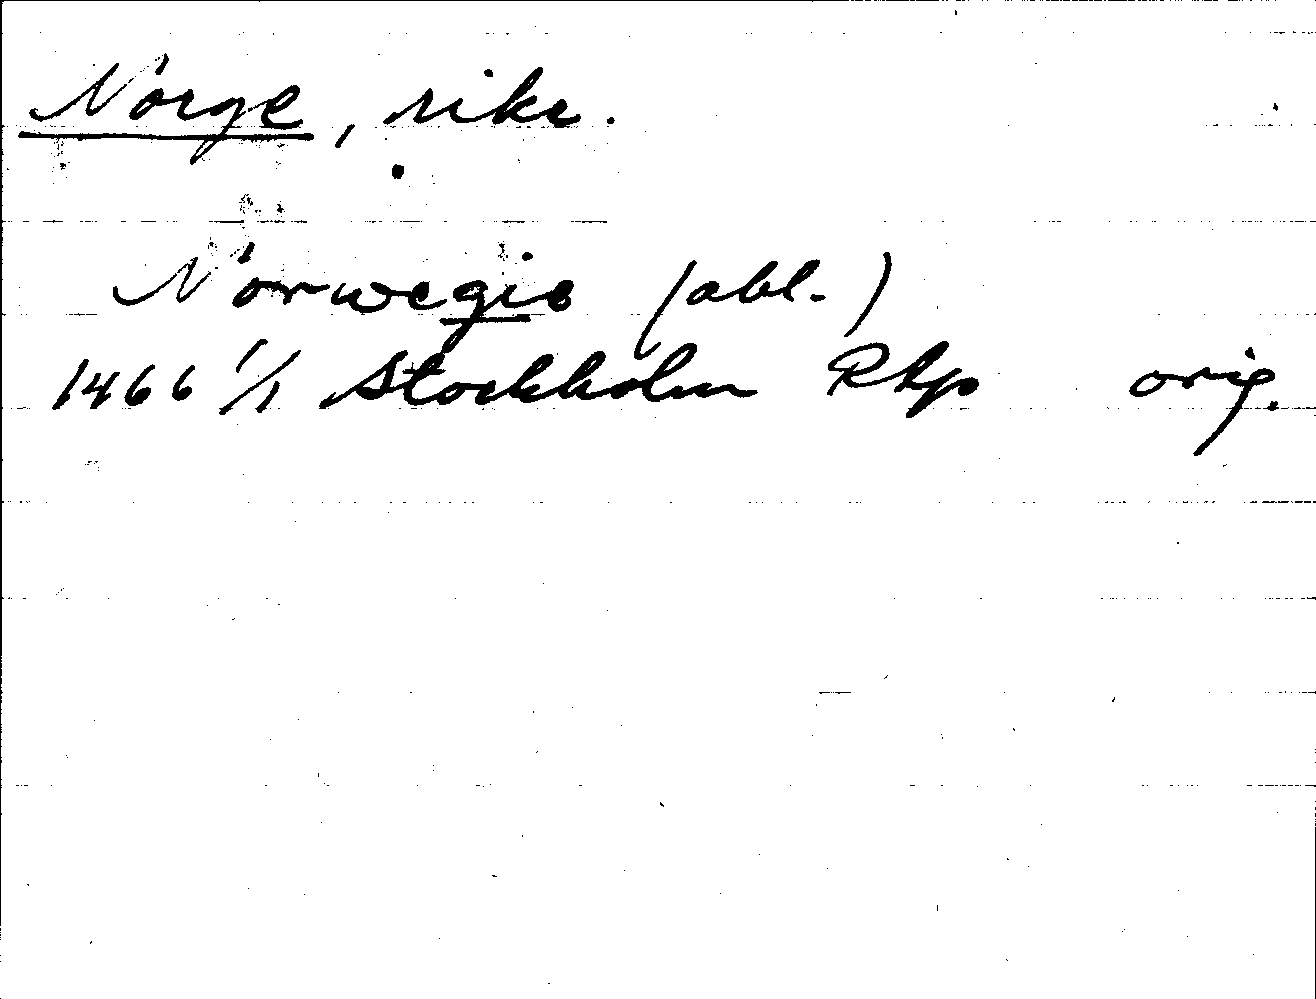 Norge, rike.
Norwegie (abl.)
1466 1/1 Stockholm RAp orig.